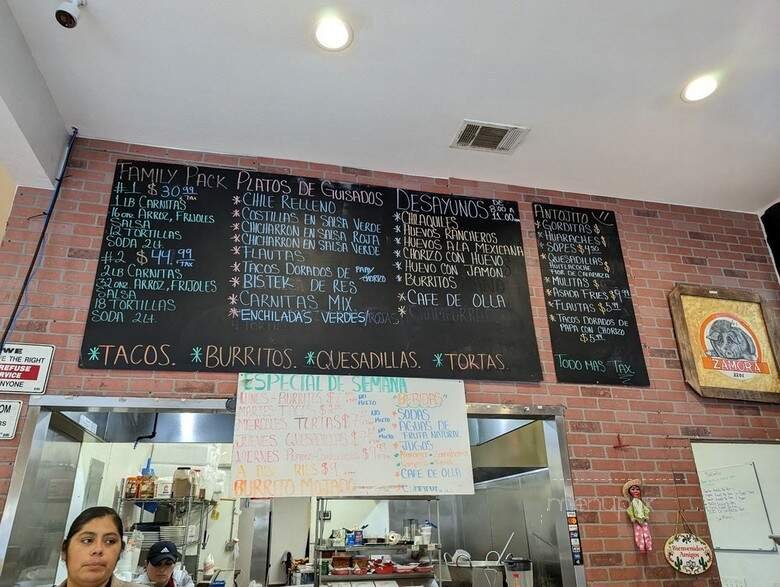 FAMILY PACK
#1 $30.99
TAX
1 LB CARNITAS
16 onz ARROZ, FRIJOLES
SALSA
12 TORTILLAS
SODA 2Lt.
#2 $44.99
TAX
2LB CARNITAS
32 onz ARROZ, FRIJOLES
SALSA
18 TORTILLAS
SODA 2Lt
PLATOS DE GUISADOS
* CHILE RELLENO
* COSTILLAS EN SALSA VERDE
* CHICHARRON EN SALSA ROJA
* CHICHARRON EN SALSA VERDE
* FLAUTAS
* TACOS DORADOS DE PAPA Y CHORIZO
* BISTEK DE RES
* CARNITAS MIX
* ENCHILADAS VERDES/ROJAS
DESAYUNOS DE 8:00 A 11:00
* CHILAQUILES
* HUEVOS RANCHEROS
* HUEVOS A LA MEXICANA
* CHORIZO CON HUEVO
* HUEVO CON JAMON
* BURRITOS
* CAFE DE OLLA
*TACOS. *BURRITOS. *QUESADILLAS. *TORTAS.
ANTOJITO
* GORDITAS $
* HUARACHES $
* SOPES $
* QUESADILLAS
HUITLACOCHE
FLOR DE CALABAZA
* MULITAS $
* ASADA FRIES $
* FLAUTAS $5.99
* TACOS DORADOS DE
PAPA CON CHORIZO
$5.99
TODO MAS TAX
ZAMORA
WE
THE RIGHT
REFUSE
SERVICE
ANYONE
ESPECIAL DE SEMANA
LUNES - BURRITOS $
MARTES
MIERCOLES TORTAS $
JUEVES QUESADILLAS $
VIERNES
BURRITO MOJADO
BEBIDAS
* SODAS
* AGUAS DE
FRUTA NATURAL
* JUGOS
* CAFE DE OLLA
Bienvenidos
Amigos